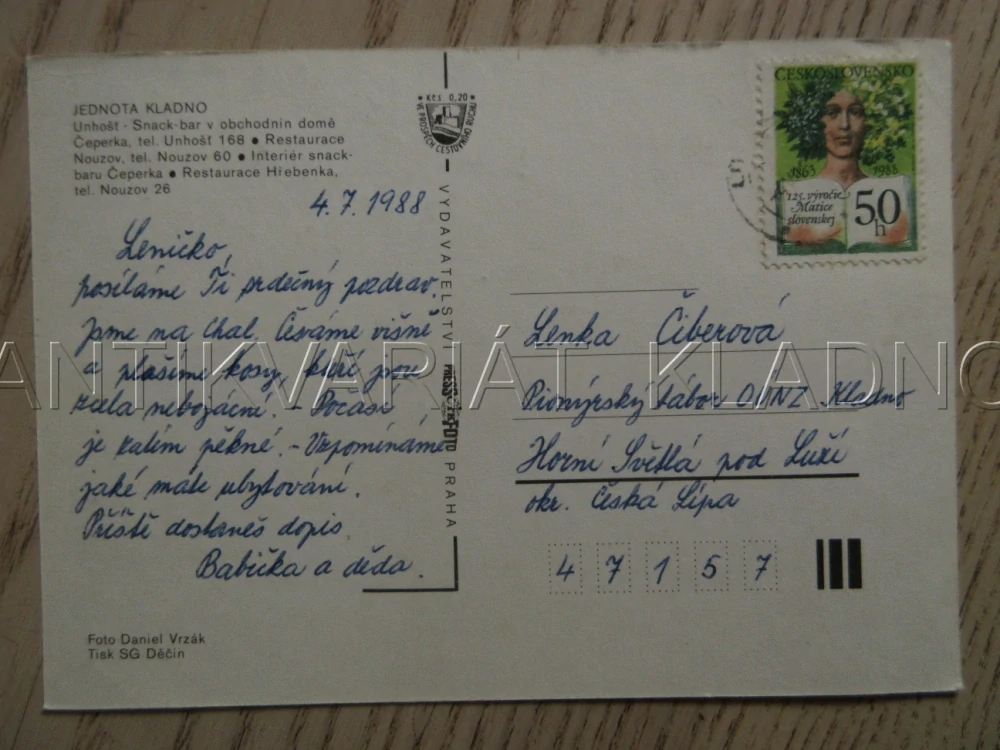 JEDNOTA KLADNO
Unhošť - Snack-bar v obchodním domě
Čeperka, tel. Unhošť 168 • Restaurace
Nouzov, tel. Nouzov 60 • Interiér snack-
baru Čeperka • Restaurace Hřebenka,
tel. Nouzov 26
4.7.1988
Leničko,
posíláme Ti srdečný pozdrav.
Jsme na chal. Česáme višně
a plašíme kosy, kteří jsou
zcela nebojácní. - Počasí
je zatím pěkné. - Vzpomínáme
jaké máte ubytování.
Příště dostaneš dopis.
Babička a děda.
Foto Daniel Vrzák
Tisk SG Děčín
Kčs 0,20
VE PROSPĚCH CESTOVNÍHO RUCHU
VYDAVATELSTVÍ PRESSFOTO PRAHA
ČESKOSLOVENSKO
1863 1988
125. výročie
Matice
slovenskej
50
h
Lenka Čiberová
Pionýrský tábor OÚNZ Kladno
Horní Světlá pod Luží
okr. Česká Lípa
4 7 1 5 7
ANTIKVARIÁT KLADNO